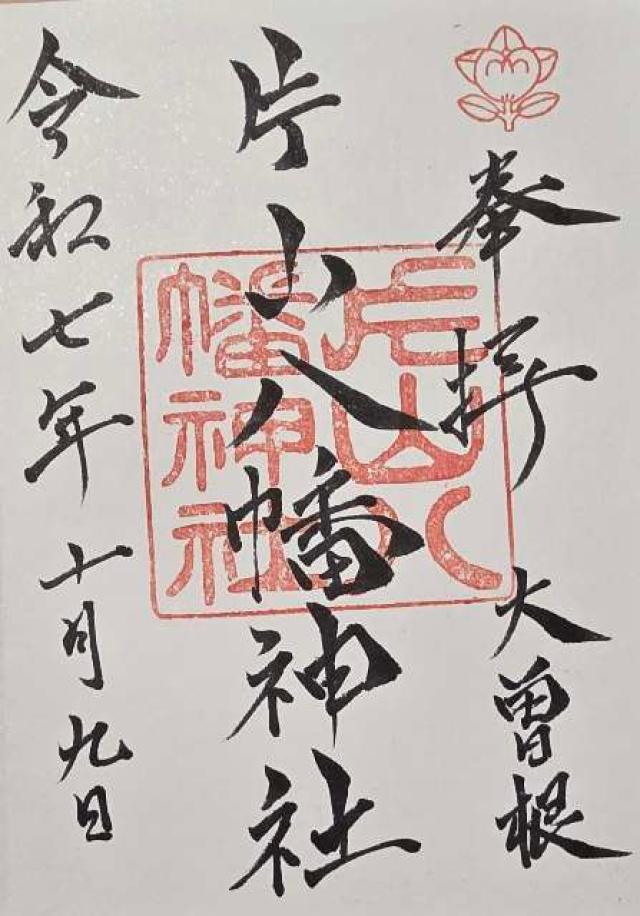 奉拝
大曽根
片山八幡神社
令和七年十月九日
片山八
幡神社